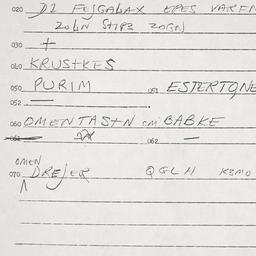 020 D2 FEJGALAX EPES VAREN
ZOLN STIPS ZOGN
030 +
040 KRUSTKES
050 PURIM 051 ESTERTQNE
052 —
060 OMENTASTN OM BABKE
062 —
OMEN
070 DREJER QGLH K3MO